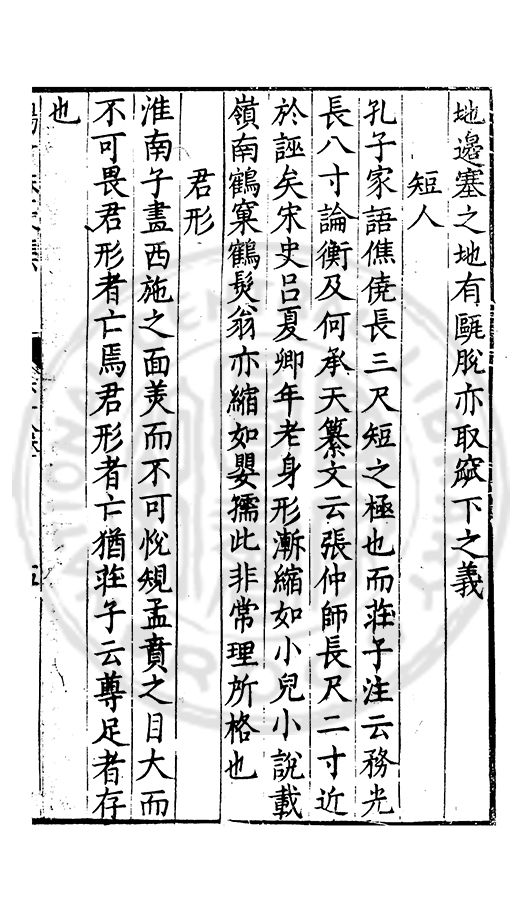 地邊塞之地有甌脫亦取窳下之義
短人
孔子家語僬僥長三尺短之極也而莊子注云務光
長八寸論衡及何承天纂文云張仲師長尺二寸近
於誣矣宋史呂夏卿年老身形漸縮如小兒小說載
嶺南鶴窠鶴髮翁亦縮如嬰孺此非常理所格也
君形
淮南子畫西施之面美而不可悅規孟賁之目大而
不可畏君形者亡焉君形者亡猶莊子云尊足者存
也